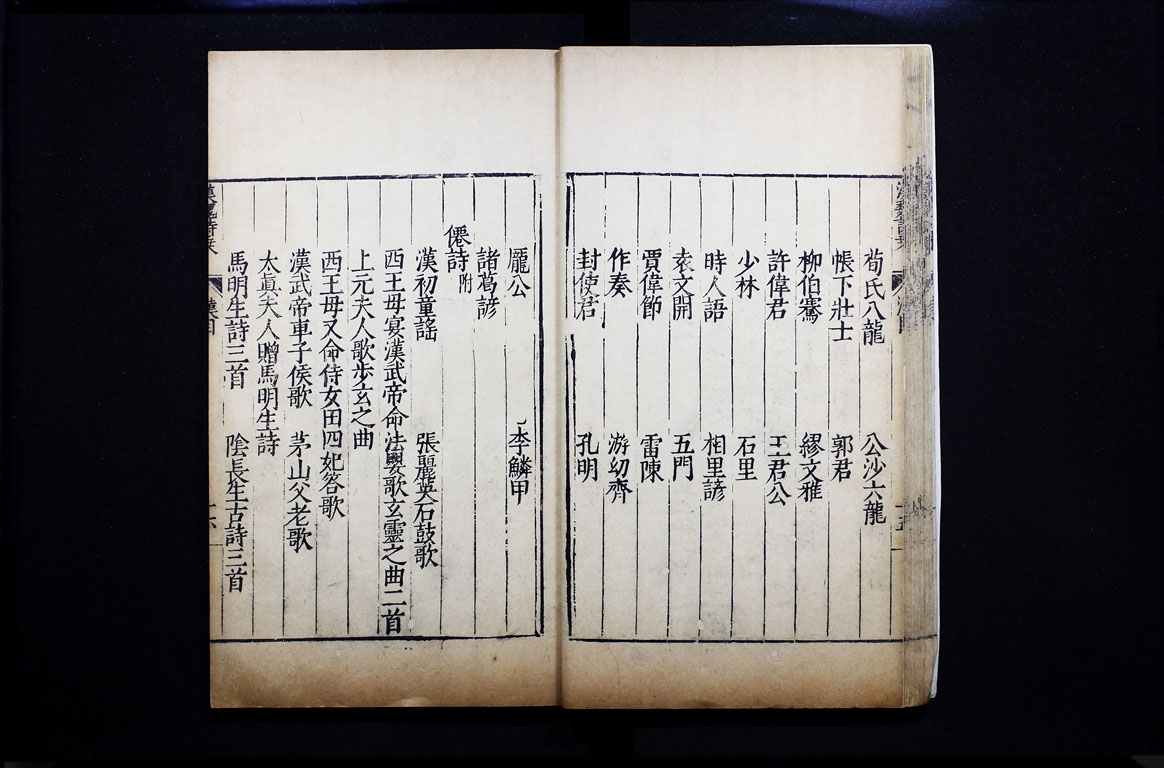 荀氏八龍　公沙六龍
帳下壯士　郭君
柳伯騫　繆文雅
許偉君　王君公
少林　石里
時人語　相里諺
袁文開　五門
賈偉節　雷陳
作奏　游幼齊
封使君　孔明
龐公　李鱗甲
諸葛諺
僊詩附
漢初童謠　張麗英石鼓歌
西王母宴漢武帝命法嬰歌玄靈之曲二首
上元夫人歌步玄之曲
西王母又命侍女田四妃答歌
漢武帝車子侯歌　茅山父老歌
太眞夫人贈馬明生詩
馬明生詩三首　陰長生古詩三首